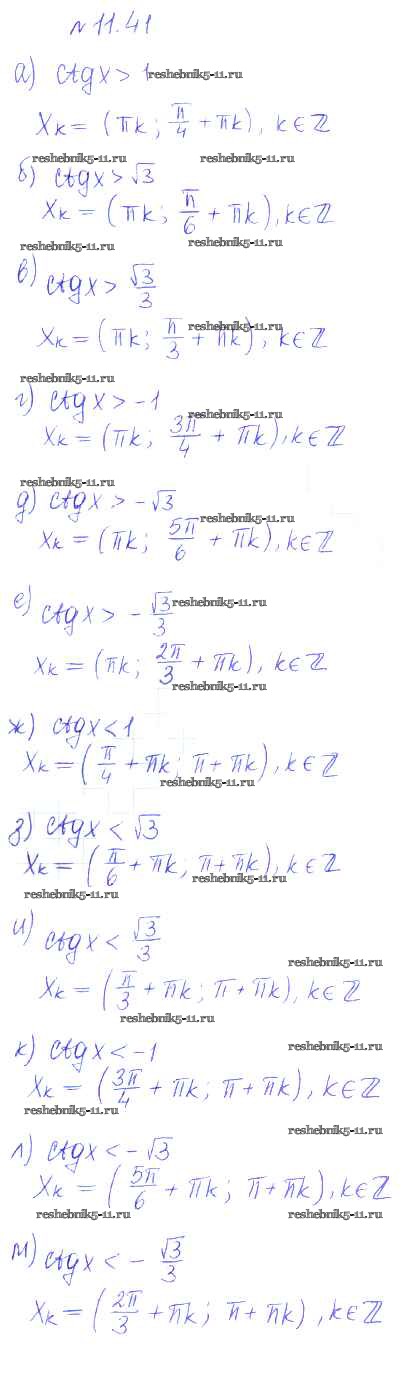 №11.41
а) ctgx > 1 reshebnik5-11.ru
Xк = (πk; π/4 + πk), k∈ℤ
reshebnik5-11.ru reshebnik5-11.ru
б) ctgx > √3
Xк = (πk; π/6 + πk), k∈ℤ
reshebnik5-11.ru reshebnik5-11.ru
в) ctgx > √3/3
reshebnik5-11.ru
Xк = (πk; π/3 + πk), k∈ℤ
reshebnik5-11.ru
г) ctgx > -1
reshebnik5-11.ru
Xк = (πk; 3π/4 + πk), k∈ℤ
reshebnik5-11.ru
д) ctgx > -√3
reshebnik5-11.ru
Xк = (πk; 5π/6 + πk), k∈ℤ
е) ctgx > -√3/3 reshebnik5-11.ru
Xк = (πk; 2π/3 + πk), k∈ℤ
reshebnik5-11.ru
ж) ctgx < 1
Xк = (π/4 + πk; π + πk), k∈ℤ
reshebnik5-11.ru
з) ctgx < √3
Xк = (π/6 + πk; π + πk), k∈ℤ
reshebnik5-11.ru reshebnik5-11.ru
и) ctgx < √3/3
reshebnik5-11.ru
Xк = (π/3 + πk; π + πk), k∈ℤ
reshebnik5-11.ru
к) ctgx < -1 reshebnik5-11.ru
Xк = (3π/4 + πk; π + πk), k∈ℤ
reshebnik5-11.ru
reshebnik5-11.ru
л) ctgx < -√3
Xк = (5π/6 + πk; π + πk), k∈ℤ
reshebnik5-11.ru reshebnik5-11.ru
м) ctgx < -√3/3
Xк = (2π/3 + πk; π + πk), k∈ℤ